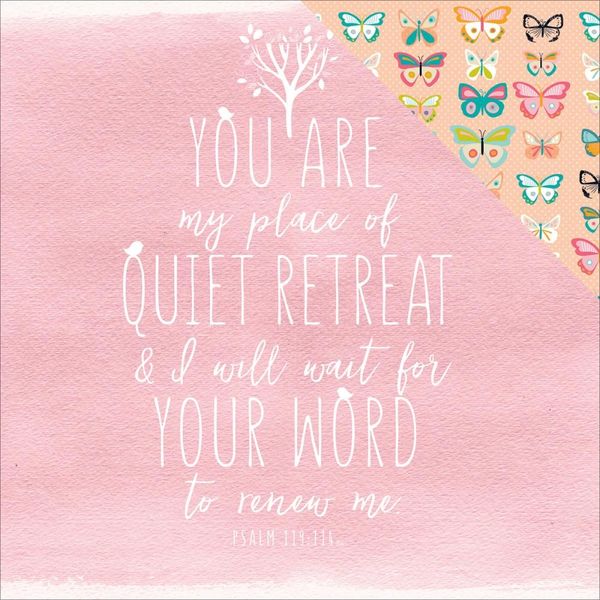 YOU ARE
my place of
QUIET RETREAT
& I will wait for
YOUR WORD
to renew me.
PSALM 119:114